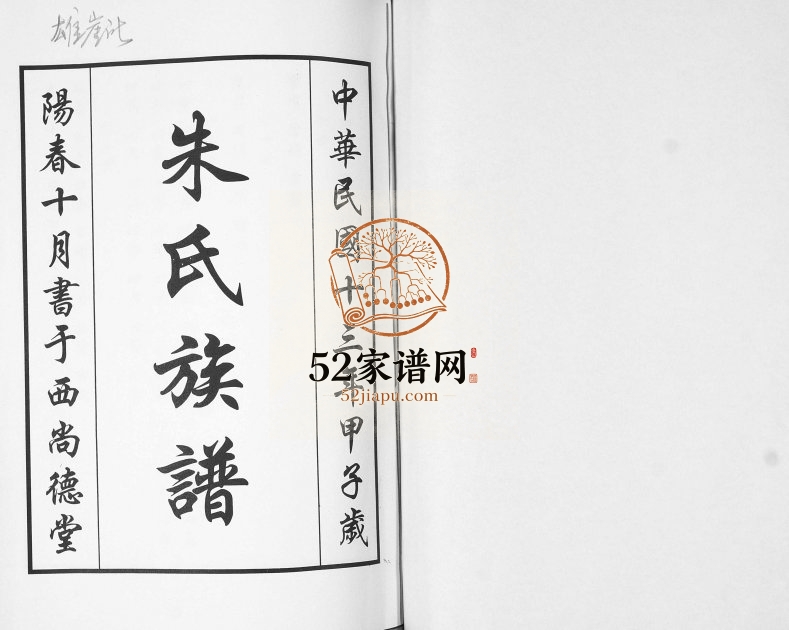 雄崖所
中華民國十三年甲子歲
朱氏族譜
陽春十月書于西尚德堂
52家谱网
52jiapu.com